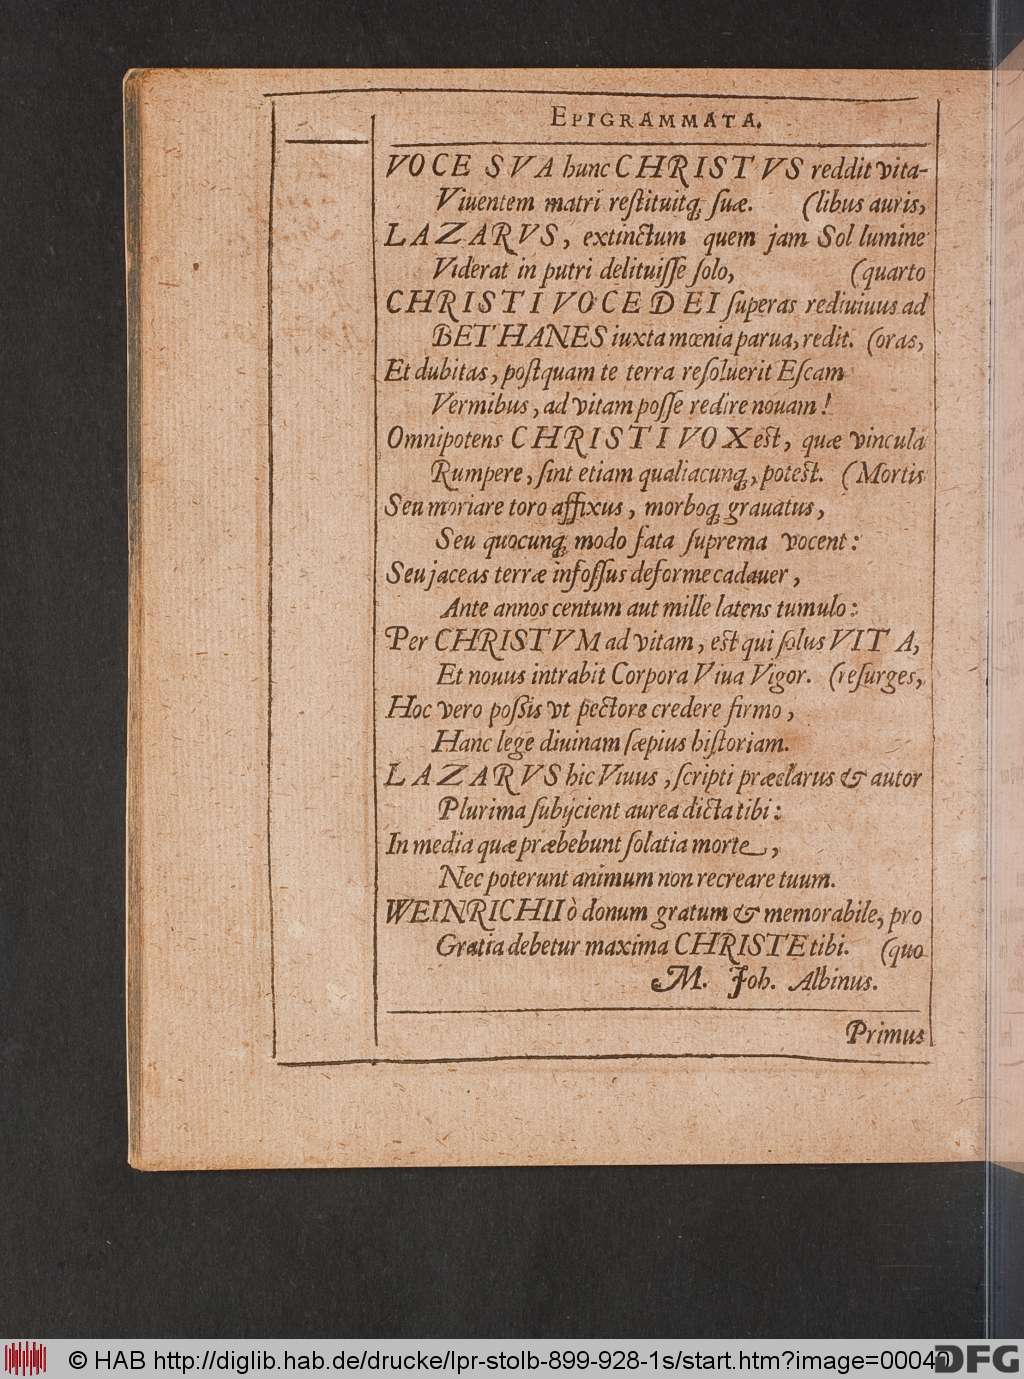 EPIGRAMMATA.
VOCE SVA hunc CHRISTVS reddit vita-
Viuentem matri reſtituitq́; ſuæ. (libus auris,
LAZARVS, extinctum quem jam Sol lumine
Viderat in putri delituiſſe ſolo, (quarto
CHRISTI VOCE DEI ſuperas rediuiuus ad
BETHANES iuxta mœnia parua, redit. (oras,
Et dubitas, poſtquam te terra reſoluerit Eſcam
Vermibus, ad vitam poſſe redire nouam!
Omnipotens CHRISTI VOX eſt, quæ vincula
Rumpere, ſint etiam qualiacunq́;, poteſt. (Mortis
Seu moriare toro affixus, morboq́; grauatus,
Seu quocunq́; modo fata ſuprema vocent:
Seu jaceas terræ infoſſus deforme cadauer,
Ante annos centum aut mille latens tumulo:
Per CHRISTVM ad vitam, eſt qui ſolus VITA,
Et nouus intrabit Corpora Viua Vigor. (reſurges,
Hoc vero poſsis vt pectore credere firmo,
Hanc lege diuinam ſæpius hiſtoriam.
LAZARVS hic Viuus, ſcripti præclarus & autor
Plurima ſubijcient aurea dicta tibi:
In media quæ præbebunt ſolatia morte,
Nec poterunt animum non recreare tuum.
WEINRICHII ò donum gratum & memorabile, pro
Gratia debetur maxima CHRISTE tibi. (quo
M. Joh. Albinus.
Primus
© HAB http://diglib.hab.de/drucke/lpr-stolb-899-928-1s/start.htm?image=00040
DFG